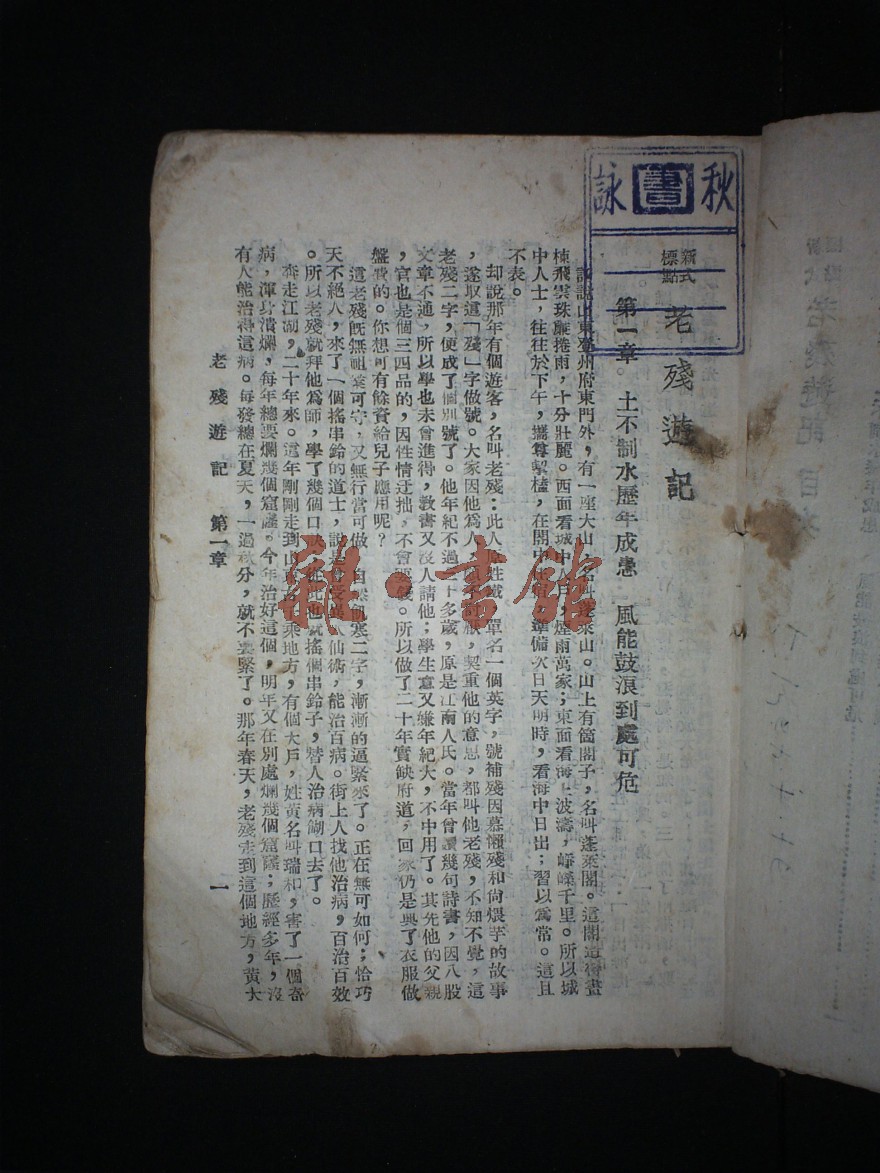 秋 書 詠
新式標點 老殘遊記
第一章。 土不制水歷年成患 風能鼓浪到處可危
話說山東登州府東門外，有一座大山，名叫蓬萊山。山上有箇閣子，名叫蓬萊閣。這閣造得畫
棟飛雲珠簾捲雨，十分壯麗。西面看城中人戶，煙雨萬家；東面看海上波濤，崢嶸千里。所以城
中人士，往往於下午，攜尊挈榼，在閣中住宿，準備次日天明時，看海中日出；習以為常。這且
不表。
却說那年有個遊客，名叫老殘：此人原姓鐵，單名一個英字，號補殘因慕懶殘和尚煨芋的故事
，遂取這「殘」字做號。大家因他為人頗不討厭，契重他的意思，都叫他老殘，不知不覺，這
老殘二字，便成了個別號了。他年紀不過三十多歲，原是江南人氏。當年曾讀幾句詩書，因八股
文章不通，所以學也未曾進得，教書又沒人請他；學生意又嫌年紀大，不中用了。其先他的父親
，官也是個三四品的，因性情迂拙，不會要錢。所以做了二十年實缺府道，回家仍是典了衣服做
盤費的。你想可有餘資給兒子應用呢？
這老殘既無祖業可守，又無行當可做，自然飢寒二字，漸漸的逼緊來了。正在無可如何；恰巧
天不絕人，來了一個搖串鈴的道士，說是曾受異人仙術，能治百病。街上人找他治病，百治百效
。所以老殘就拜他為師，學了幾個口訣，從此也就搖個串鈴子，替人治病餬口去了。
奔走江湖，二十年來。這年剛剛走到山東古千乘地方，有個大戶，姓黃名叫瑞和，害了一個奇
病，渾身潰爛，每年總要爛幾個窟窿。今年治好這個，明年又在別處爛幾個窟窿；歷經多年，沒
有人能治得這病。每發總在夏天，一過秋分，就不要緊了。那年春天，老殘走到這個地方，黃大
老殘遊記 第一章 一